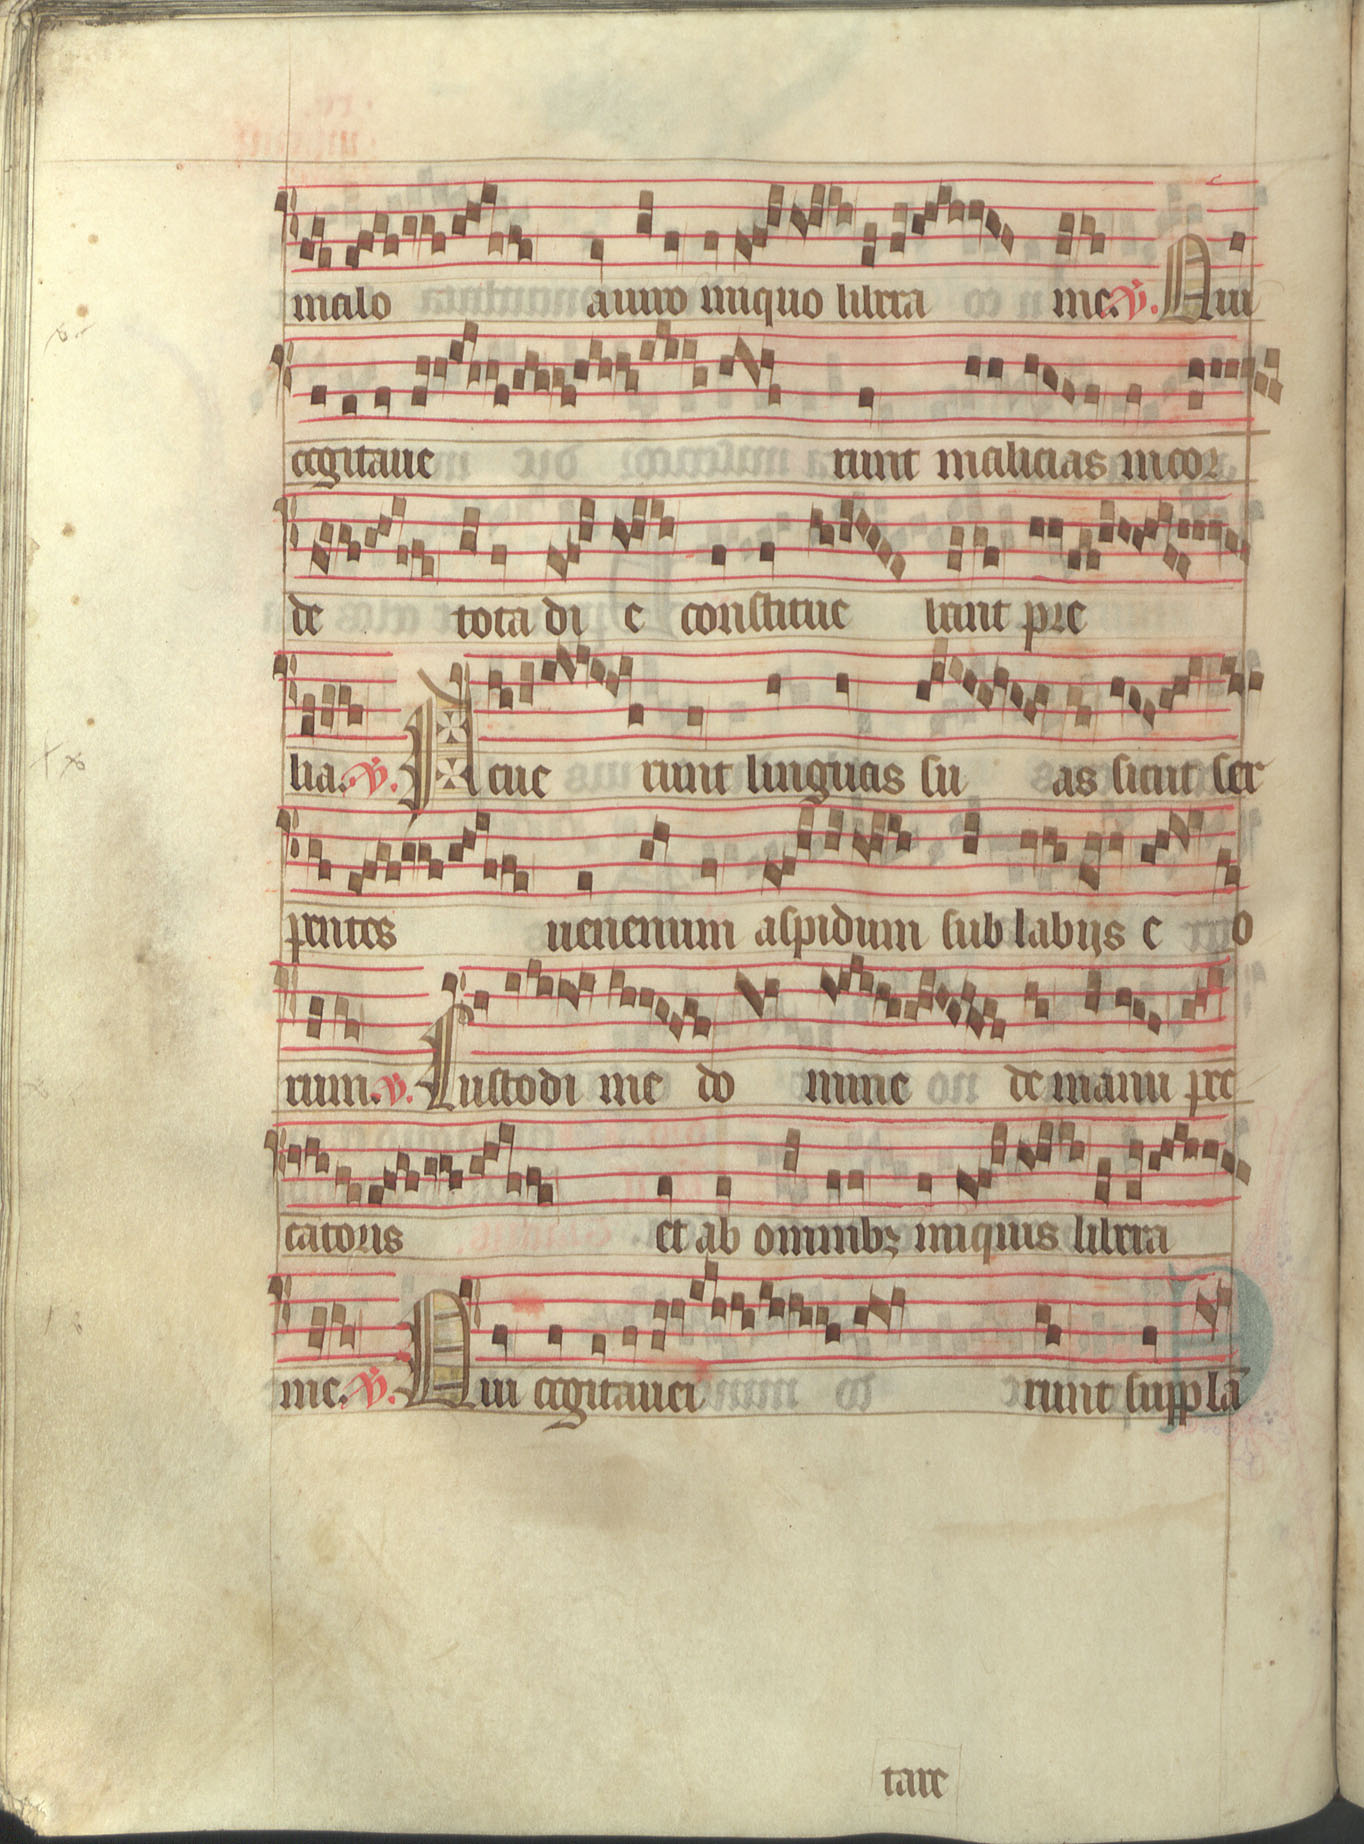 malo a uiro iniquo libera me. V. Qui
cogitaue runt malicias in cor
de tota di e constitue bant pre
lia. V. Acue runt linguas su as sicut ser
pentes uenenum aspidum sub labijs e o
rum. V. Custodi me do mine de manu pec
catoris et ab omnibꝫ iniquis libera
me. V. Qui cogitaue runt supplā
tare